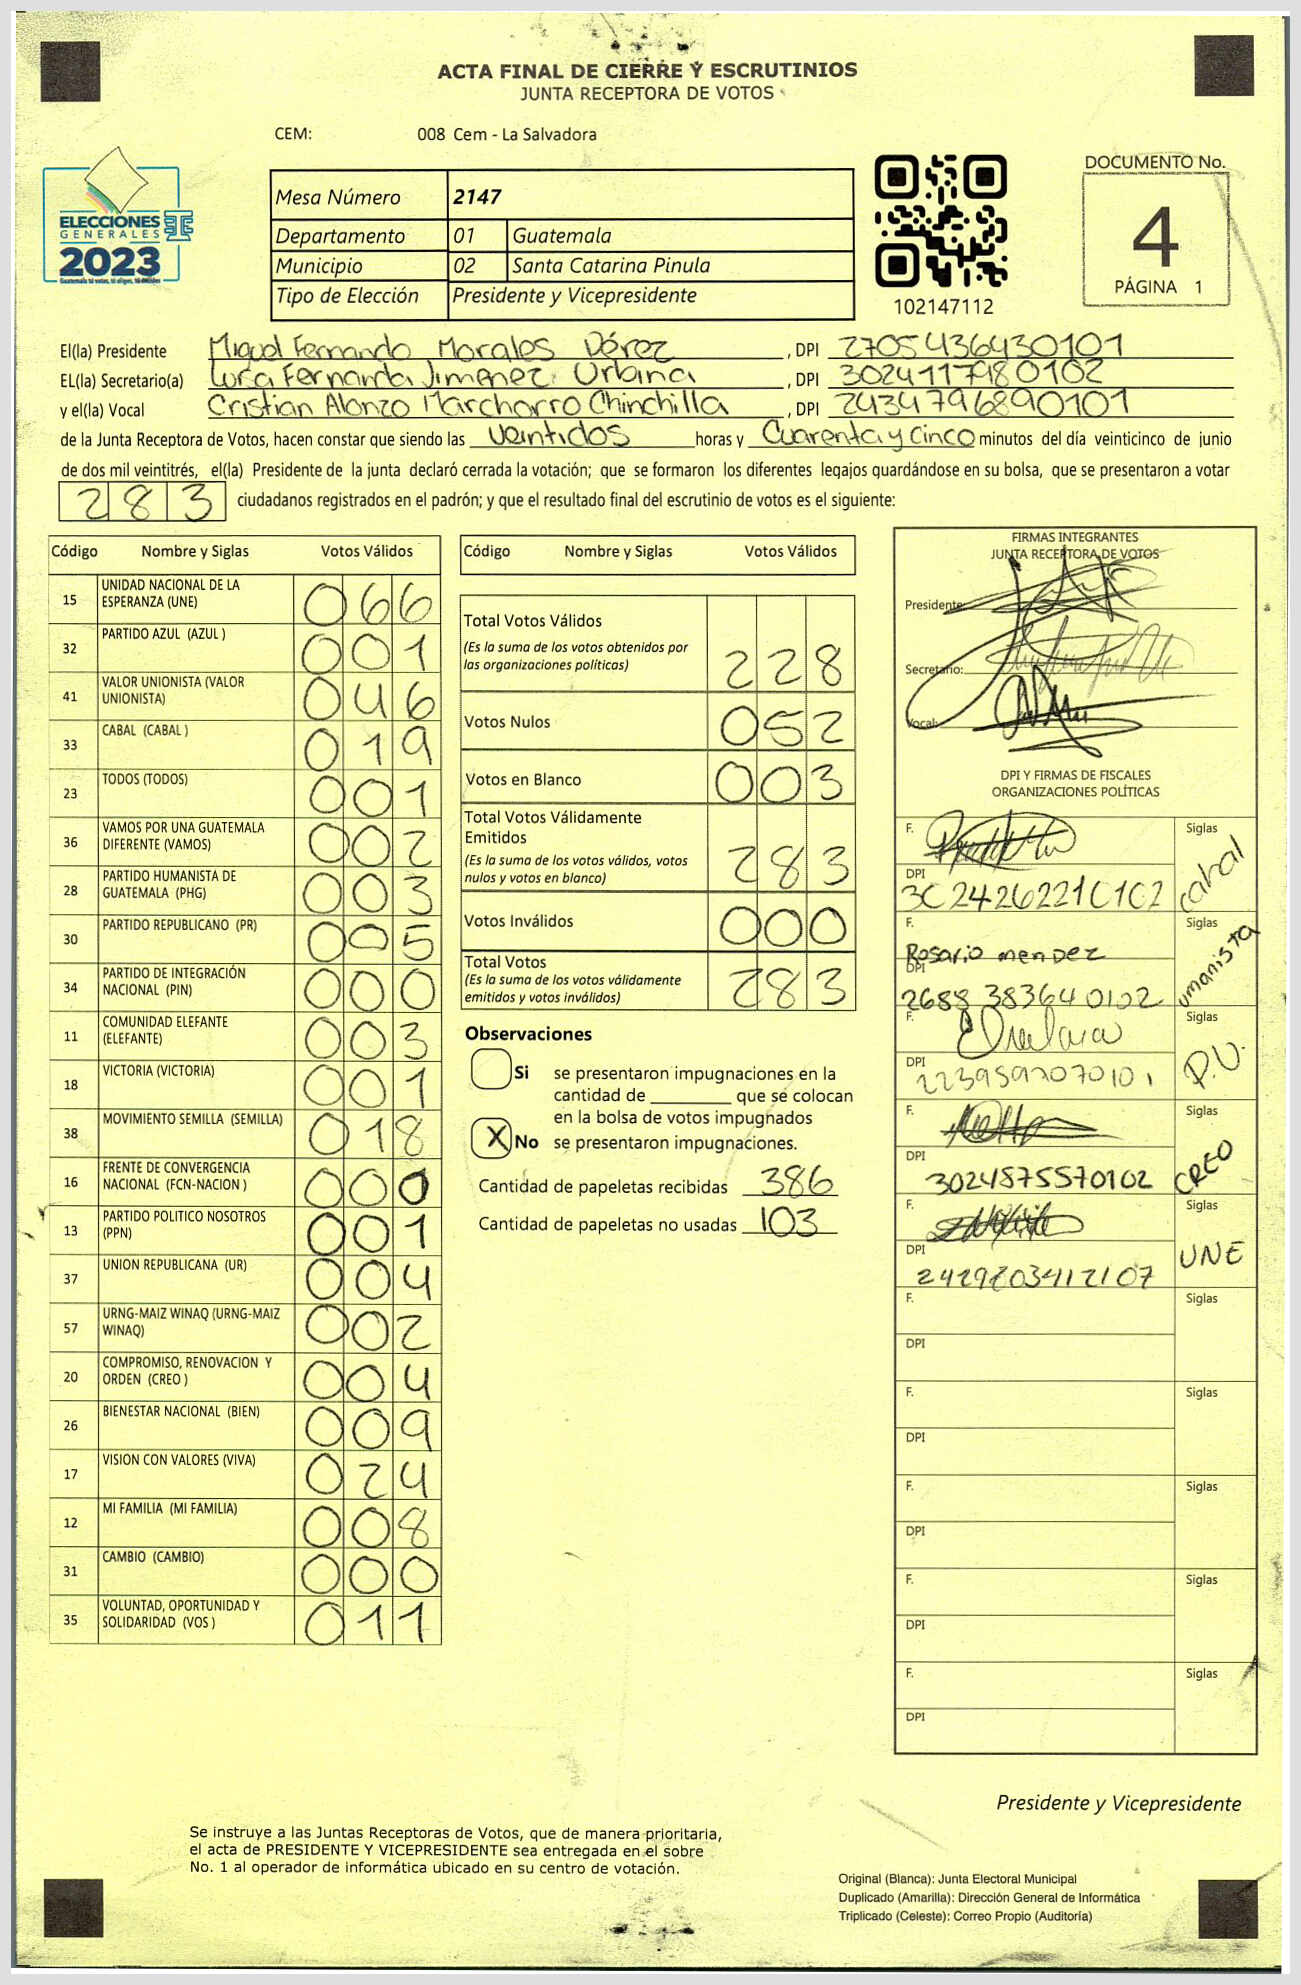 ACTA FINAL DE CIERRE Y ESCRUTINIOS
JUNTA RECEPTORA DE VOTOS
CEM: 008 Cem - La Salvadora
ELECCIONES
GENERALES
2023
Guatemala tú votas, tú eliges, tú decides
Mesa Número 2147
Departamento 01 Guatemala
Municipio 02 Santa Catarina Pinula
Tipo de Elección Presidente y Vicepresidente
102147112
DOCUMENTO No.
4
PÁGINA 1
El(la) Presidente Miguel Fernando Morales Pérez, DPI 2705436430101
EL(la) Secretario(a) Luisa Fernanda Jimenez Urbina, DPI 3024117980102
y el(la) Vocal Cristian Alonzo Marcharro Chinchilla, DPI 2434796890101
de la Junta Receptora de Votos, hacen constar que siendo las veintidos horas y Cuarenta y cinco minutos del día veinticinco de junio
de dos mil veintitrés, el(la) Presidente de la junta declaró cerrada la votación; que se formaron los diferentes legajos quardándose en su bolsa, que se presentaron a votar
283 ciudadanos registrados en el padrón; y que el resultado final del escrutinio de votos es el siguiente:
Código Nombre y Siglas Votos Válidos
15 UNIDAD NACIONAL DE LA ESPERANZA (UNE) 066
32 PARTIDO AZUL (AZUL ) 001
41 VALOR UNIONISTA (VALOR UNIONISTA) 046
33 CABAL (CABAL ) 019
23 TODOS (TODOS) 001
36 VAMOS POR UNA GUATEMALA DIFERENTE (VAMOS) 002
28 PARTIDO HUMANISTA DE GUATEMALA (PHG) 003
30 PARTIDO REPUBLICANO (PR) 005
34 PARTIDO DE INTEGRACIÓN NACIONAL (PIN) 000
11 COMUNIDAD ELEFANTE (ELEFANTE) 003
18 VICTORIA (VICTORIA) 001
38 MOVIMIENTO SEMILLA (SEMILLA) 018
16 FRENTE DE CONVERGENCIA NACIONAL (FCN-NACION ) 000
13 PARTIDO POLITICO NOSOTROS (PPN) 001
37 UNION REPUBLICANA (UR) 004
57 URNG-MAIZ WINAQ (URNG-MAIZ WINAQ) 002
20 COMPROMISO, RENOVACION Y ORDEN (CREO ) 004
26 BIENESTAR NACIONAL (BIEN) 009
17 VISION CON VALORES (VIVA) 024
12 MI FAMILIA (MI FAMILIA) 008
31 CAMBIO (CAMBIO) 000
35 VOLUNTAD, OPORTUNIDAD Y SOLIDARIDAD (VOS ) 011
Código Nombre y Siglas Votos Válidos
Total Votos Válidos
(Es la suma de los votos obtenidos por
las organizaciones políticas) 228
Votos Nulos 052
Votos en Blanco 003
Total Votos Válidamente
Emitidos
(Es la suma de los votos válidos, votos
nulos y votos en blanco) 283
Votos Inválidos 000
Total Votos
(Es la suma de los votos válidamente
emitidos y votos inválidos) 283
Observaciones
Si se presentaron impugnaciones en la
cantidad de ________ que se colocan
en la bolsa de votos impugnados
X No se presentaron impugnaciones.
Cantidad de papeletas recibidas 386
Cantidad de papeletas no usadas 103
FIRMAS INTEGRANTES
JUNTA RECEPTORA DE VOTOS
Presidente:
Secretario:
Vocal:
DPI Y FIRMAS DE FISCALES
ORGANIZACIONES POLÍTICAS
F. Siglas
DPI cabal
3024262210102
F. Siglas
Rosario mendez
DPI umanista
2688 383640102
F. Siglas
DPI P.U.
2239592070101
F. Siglas
DPI CREO
3024875570102
F. Siglas
DPI UNE
2429203412107
F. Siglas
DPI
F. Siglas
DPI
F. Siglas
DPI
F. Siglas
DPI
F. Siglas
DPI
Presidente y Vicepresidente
Se instruye a las Juntas Receptoras de Votos, que de manera prioritaria,
el acta de PRESIDENTE Y VICEPRESIDENTE sea entregada en el sobre
No. 1 al operador de informática ubicado en su centro de votación.
Original (Blanca): Junta Electoral Municipal
Duplicado (Amarilla): Dirección General de Informática
Triplicado (Celeste): Correo Propio (Auditoría)